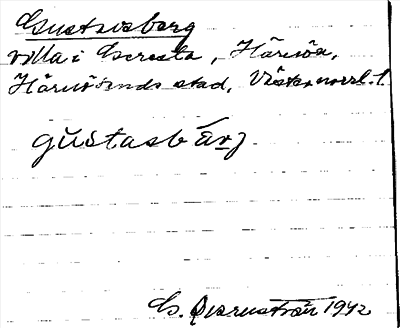 Gustavsberg
villa i Geresta, Härnön,
Härnösands stad, Västernorrl. l.
gustasbärj
G. Qvarnström 1942